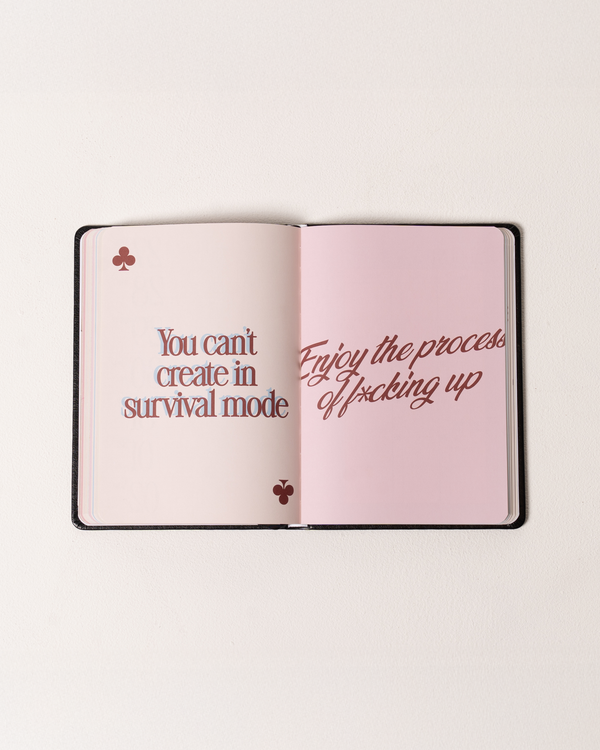 You can't
create in
survival mode
Enjoy the process
of f*cking up